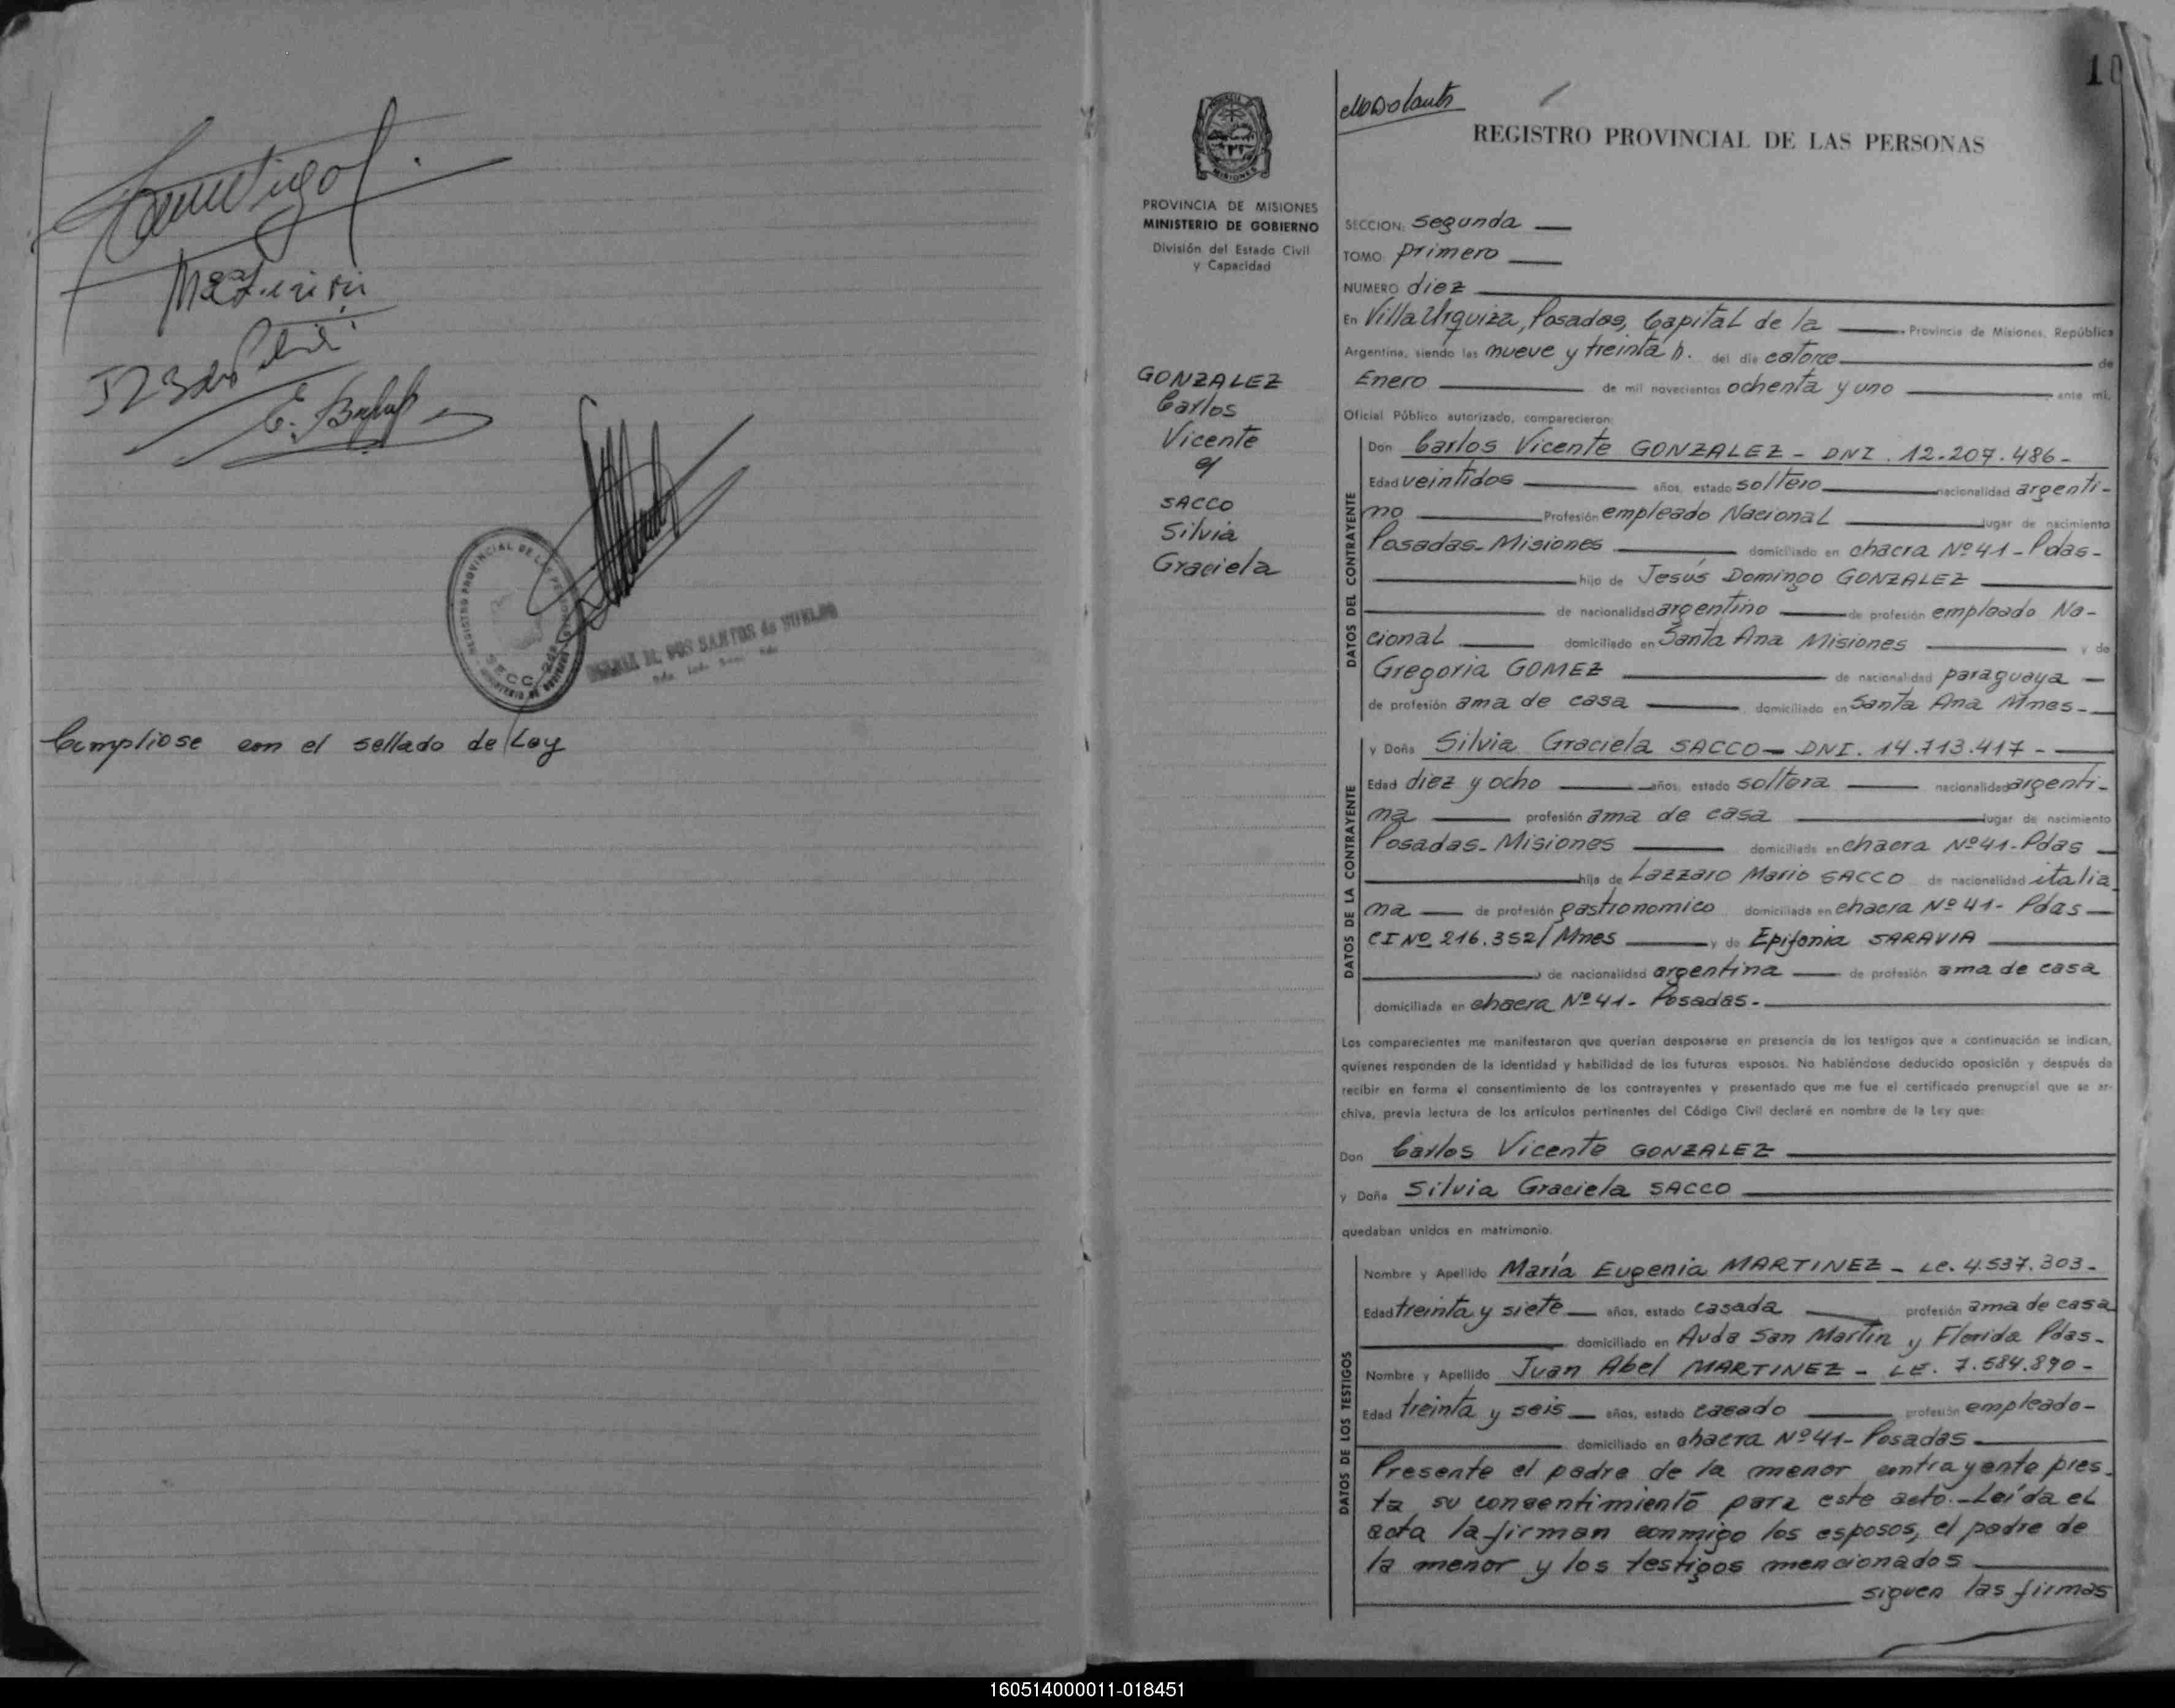 Cumpliose con el sellado de Ley
REGISTRO PROVINCIAL DE LAS PERSONAS
SECC. 2
MARIA DOS SANTOS de
10
MISIONES
PROVINCIA DE MISIONES
MINISTERIO DE GOBIERNO
División del Estado Civil
y Capacidad
GONZALEZ
Carlos
Vicente
c/
SACCO
Silvia
Graciela
REGISTRO PROVINCIAL DE LAS PERSONAS
SECCION: segunda
TOMO: primero
NUMERO diez
En Villa Urquiza, Posadas, Capital de la Provincia de Misiones, República
Argentina, siendo las nueve y treinta h. del día catorce de
Enero de mil novecientos ochenta y uno ante mi,
Oficial Público autorizado, comparecieron:
DATOS DEL CONTRAYENTE
Don Carlos Vicente GONZALEZ - DNI. 12.207.486-
Edad veintidos años, estado soltero nacionalidad argenti-
no Profesión empleado Nacional lugar de nacimiento
Posadas-Misiones domiciliado en chacra Nº 41-Pdas-
hijo de Jesús Domingo GONZALEZ
de nacionalidad argentino de profesión empleado Na-
cional domiciliado en Santa Ana Misiones y de
Gregoria GOMEZ de nacionalidad paraguaya
de profesión ama de casa domiciliada en Santa Ana Mnes-
DATOS DE LA CONTRAYENTE
y Doña Silvia Graciela SACCO - DNI. 14.713.417-
Edad diez y ocho años, estado soltera nacionalidad argenti-
na profesión ama de casa lugar de nacimiento
Posadas-Misiones domiciliada en chacra Nº 41-Pdas
hija de Lazzaro Mario SACCO de nacionalidad italia
na de profesión gastronomico domiciliada en chacra Nº 41- Pdas
CI Nº 216.352/Mnes y de Epifania SARAVIA
de nacionalidad argentina de profesión ama de casa
domiciliada en chacra Nº 41- Posadas-
Los comparecientes me manifestaron que querían desposarse en presencia de los testigos que a continuación se indican,
quienes responden de la identidad y habilidad de los futuros esposos. No habiéndose deducido oposición y después de
recibir en forma el consentimiento de los contrayentes y presentado que me fue el certificado prenupcial que se ar-
chiva, previa lectura de los artículos pertinentes del Código Civil declaré en nombre de la Ley que:
Don Carlos Vicente GONZALEZ
y Doña Silvia Graciela SACCO
quedaban unidos en matrimonio.
DATOS DE LOS TESTIGOS
Nombre y Apellido María Eugenia MARTINEZ - LC. 4.537.303-
Edad treinta y siete años, estado casada profesión ama de casa
domiciliado en Avda San Martin y Florida Pdas-
Nombre y Apellido Juan Abel MARTINEZ - LE. 7.584.890-
Edad treinta y seis años, estado casado profesión empleado-
domiciliado en chacra Nº 41- Posadas
Presente el padre de la menor contrayente pres-
ta su consentimiento para este acto.-Leída el
acta la firman conmigo los esposos, el padre de
la menor y los testigos mencionados
siguen las firmas
160514000011-018451